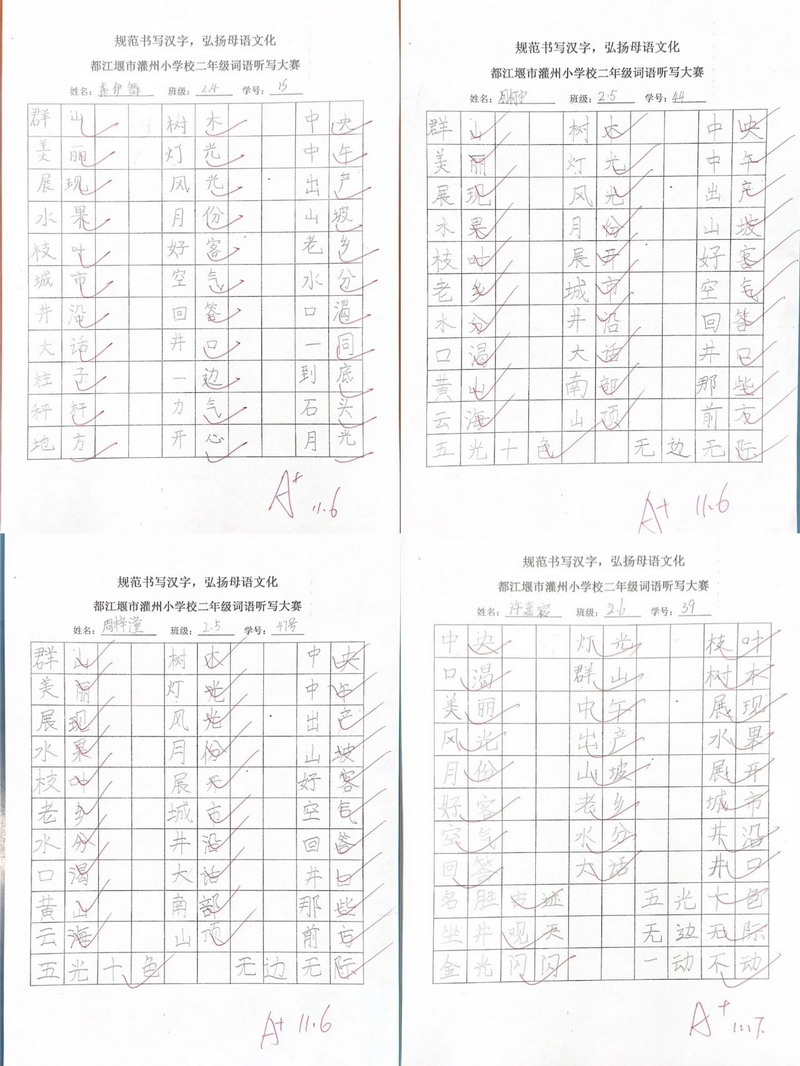 规范书写汉字，弘扬母语文化
都江堰市灌州小学校二年级词语听写大赛
姓名： 班级：2.4 学号：15
群山 树木 中央
美丽 灯光 中午
展现 风光 出产
水果 月份 山坡
枝叶 好客 老乡
城市 空气 水分
井沿 回答 口渴
大话 井口 一同
柱子 一边 到底
秤杆 力气 石头
地方 开心 月光
A+ 11.6
规范书写汉字，弘扬母语文化
都江堰市灌州小学校二年级词语听写大赛
姓名： 班级：2.5 学号：44
群山 树木 中央
美丽 灯光 中午
展现 风光 出产
水果 月份 山坡
枝叶 展开 好客
老乡 城市 空气
水分 井沿 回答
口渴 大话 井口
黄山 南部 那些
云海 山顶 前方
五光十色 无边无际
A+ 11.6
规范书写汉字，弘扬母语文化
都江堰市灌州小学校二年级词语听写大赛
姓名：周梓潼 班级：2.5 学号：47号
群山 树木 中央
美丽 灯光 中午
展现 风光 出产
水果 月份 山坡
枝叶 展开 好客
老乡 城市 空气
水分 井沿 回答
口渴 大话 井口
黄山 南部 那些
云海 山顶 前方
五光十色 无边无际
A+ 11.6
规范书写汉字，弘扬母语文化
都江堰市灌州小学校二年级词语听写大赛
姓名： 班级：2.6 学号：39
中央 灯光 枝叶
口渴 群山 树木
美丽 中午 展现
风光 出产 水果
月份 山坡 展开
好客 老乡 城市
空气 水分 井沿
回答 大话 井口
名胜古迹 五光十色
坐井观天 无边无际
金光闪闪 一动不动
A+ 11.7.